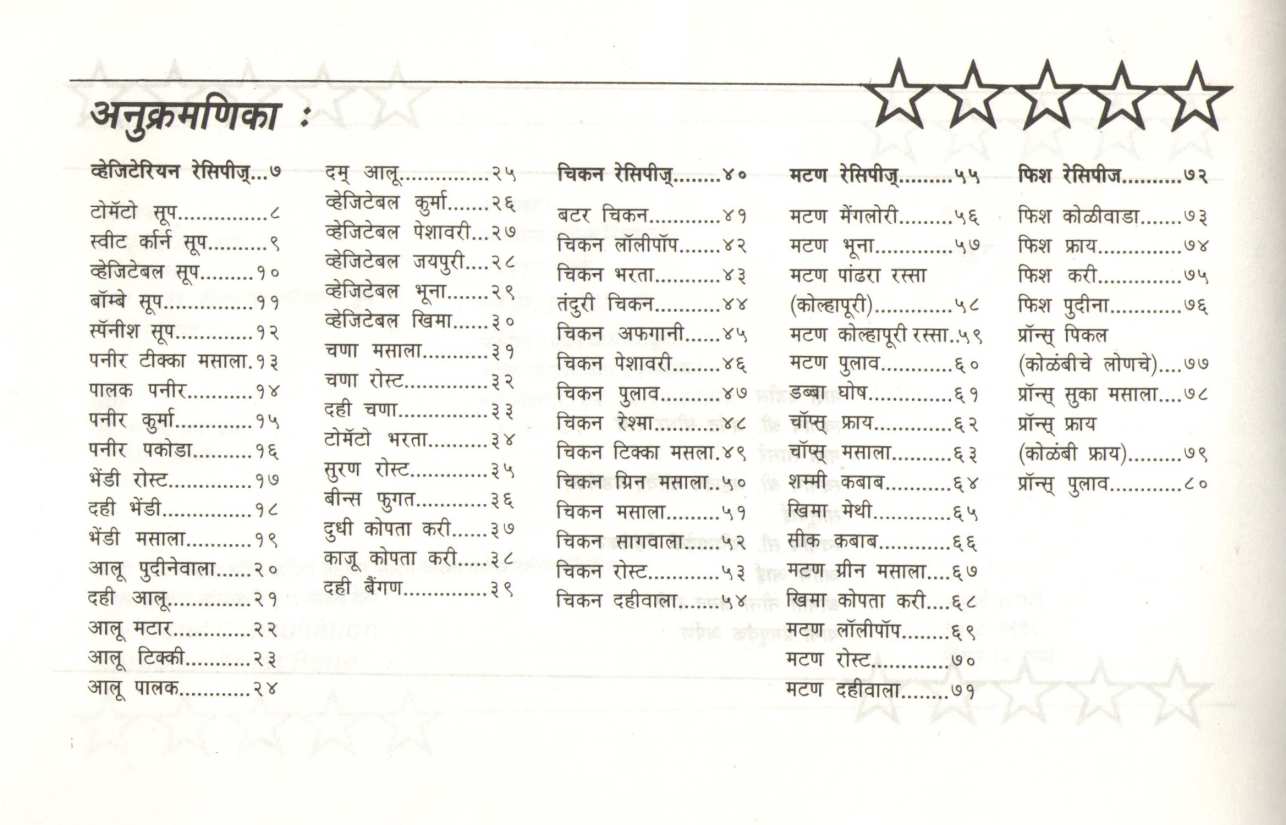 अनुक्रमणिका :
व्हेजिटेरियन रेसिपीज्...७
टोमॅटो सूप..............८
स्वीट कॉर्न सूप..........९
व्हेजिटेबल सूप.........१०
बॉम्बे सूप...............११
स्पॅनीश सूप.............१२
पनीर टीक्का मसाला.१३
पालक पनीर...........१४
पनीर कुर्मा.............१५
पनीर पकोडा..........१६
भेंडी रोस्ट..............१७
दही भेंडी...............१८
भेंडी मसाला...........१९
आलू पुदीनेवाला......२०
दही आलू..............२१
आलू मटार.............२२
आलू टिक्की...........२३
आलू पालक............२४
दम् आलू...............२५
व्हेजिटेबल कुर्मा.......२६
व्हेजिटेबल पेशावरी...२७
व्हेजिटेबल जयपुरी....२८
व्हेजिटेबल भूना.......२९
व्हेजिटेबल खिमा......३०
चणा मसाला...........३१
चणा रोस्ट..............३२
दही चणा...............३३
टोमॅटो भरता..........३४
सुरण रोस्ट.............३५
बीन्स फुगत............३६
दुधी कोपता करी......३७
काजू कोपता करी.....३८
दही बैंगण..............३९
चिकन रेसिपीज्........४०
बटर चिकन............४१
चिकन लॉलीपॉप.......४२
चिकन भरता...........४३
तंदुरी चिकन...........४४
चिकन अफगानी......४५
चिकन पेशावरी........४६
चिकन पुलाव..........४७
चिकन रेश्मा...........४८
चिकन टिक्का मसला.४९
चिकन ग्रिन मसाला...५०
चिकन मसाला.........५१
चिकन सागवाला......५२
चिकन रोस्ट............५३
चिकन दहीवाला.......५४
मटण रेसिपीज्.........५५
मटण मेंगलोरी.........५६
मटण भूना.............५७
मटण पांढरा रस्सा
(कोल्हापूरी).............५८
मटण कोल्हापूरी रस्सा..५९
मटण पुलाव............६०
डब्बा घोष..............६१
चॉप्स् फ्राय.............६२
चॉप्स् मसाला..........६३
शम्मी कबाब...........६४
खिमा मेथी.............६५
सीक कबाब............६६
मटण ग्रीन मसाला....६७
खिमा कोपता करी....६८
मटण लॉलीपॉप........६९
मटण रोस्ट.............७०
मटण दहीवाला........७१
फिश रेसिपीज..........७२
फिश कोळीवाडा.......७३
फिश फ्राय..............७४
फिश करी..............७५
फिश पुदीना............७६
प्रॉन्स् पिकल
(कोळंबीचे लोणचे)....७७
प्रॉन्स् सुका मसाला....७८
प्रॉन्स् फ्राय
(कोळंबी फ्राय).........७९
प्रॉन्स् पुलाव............८०